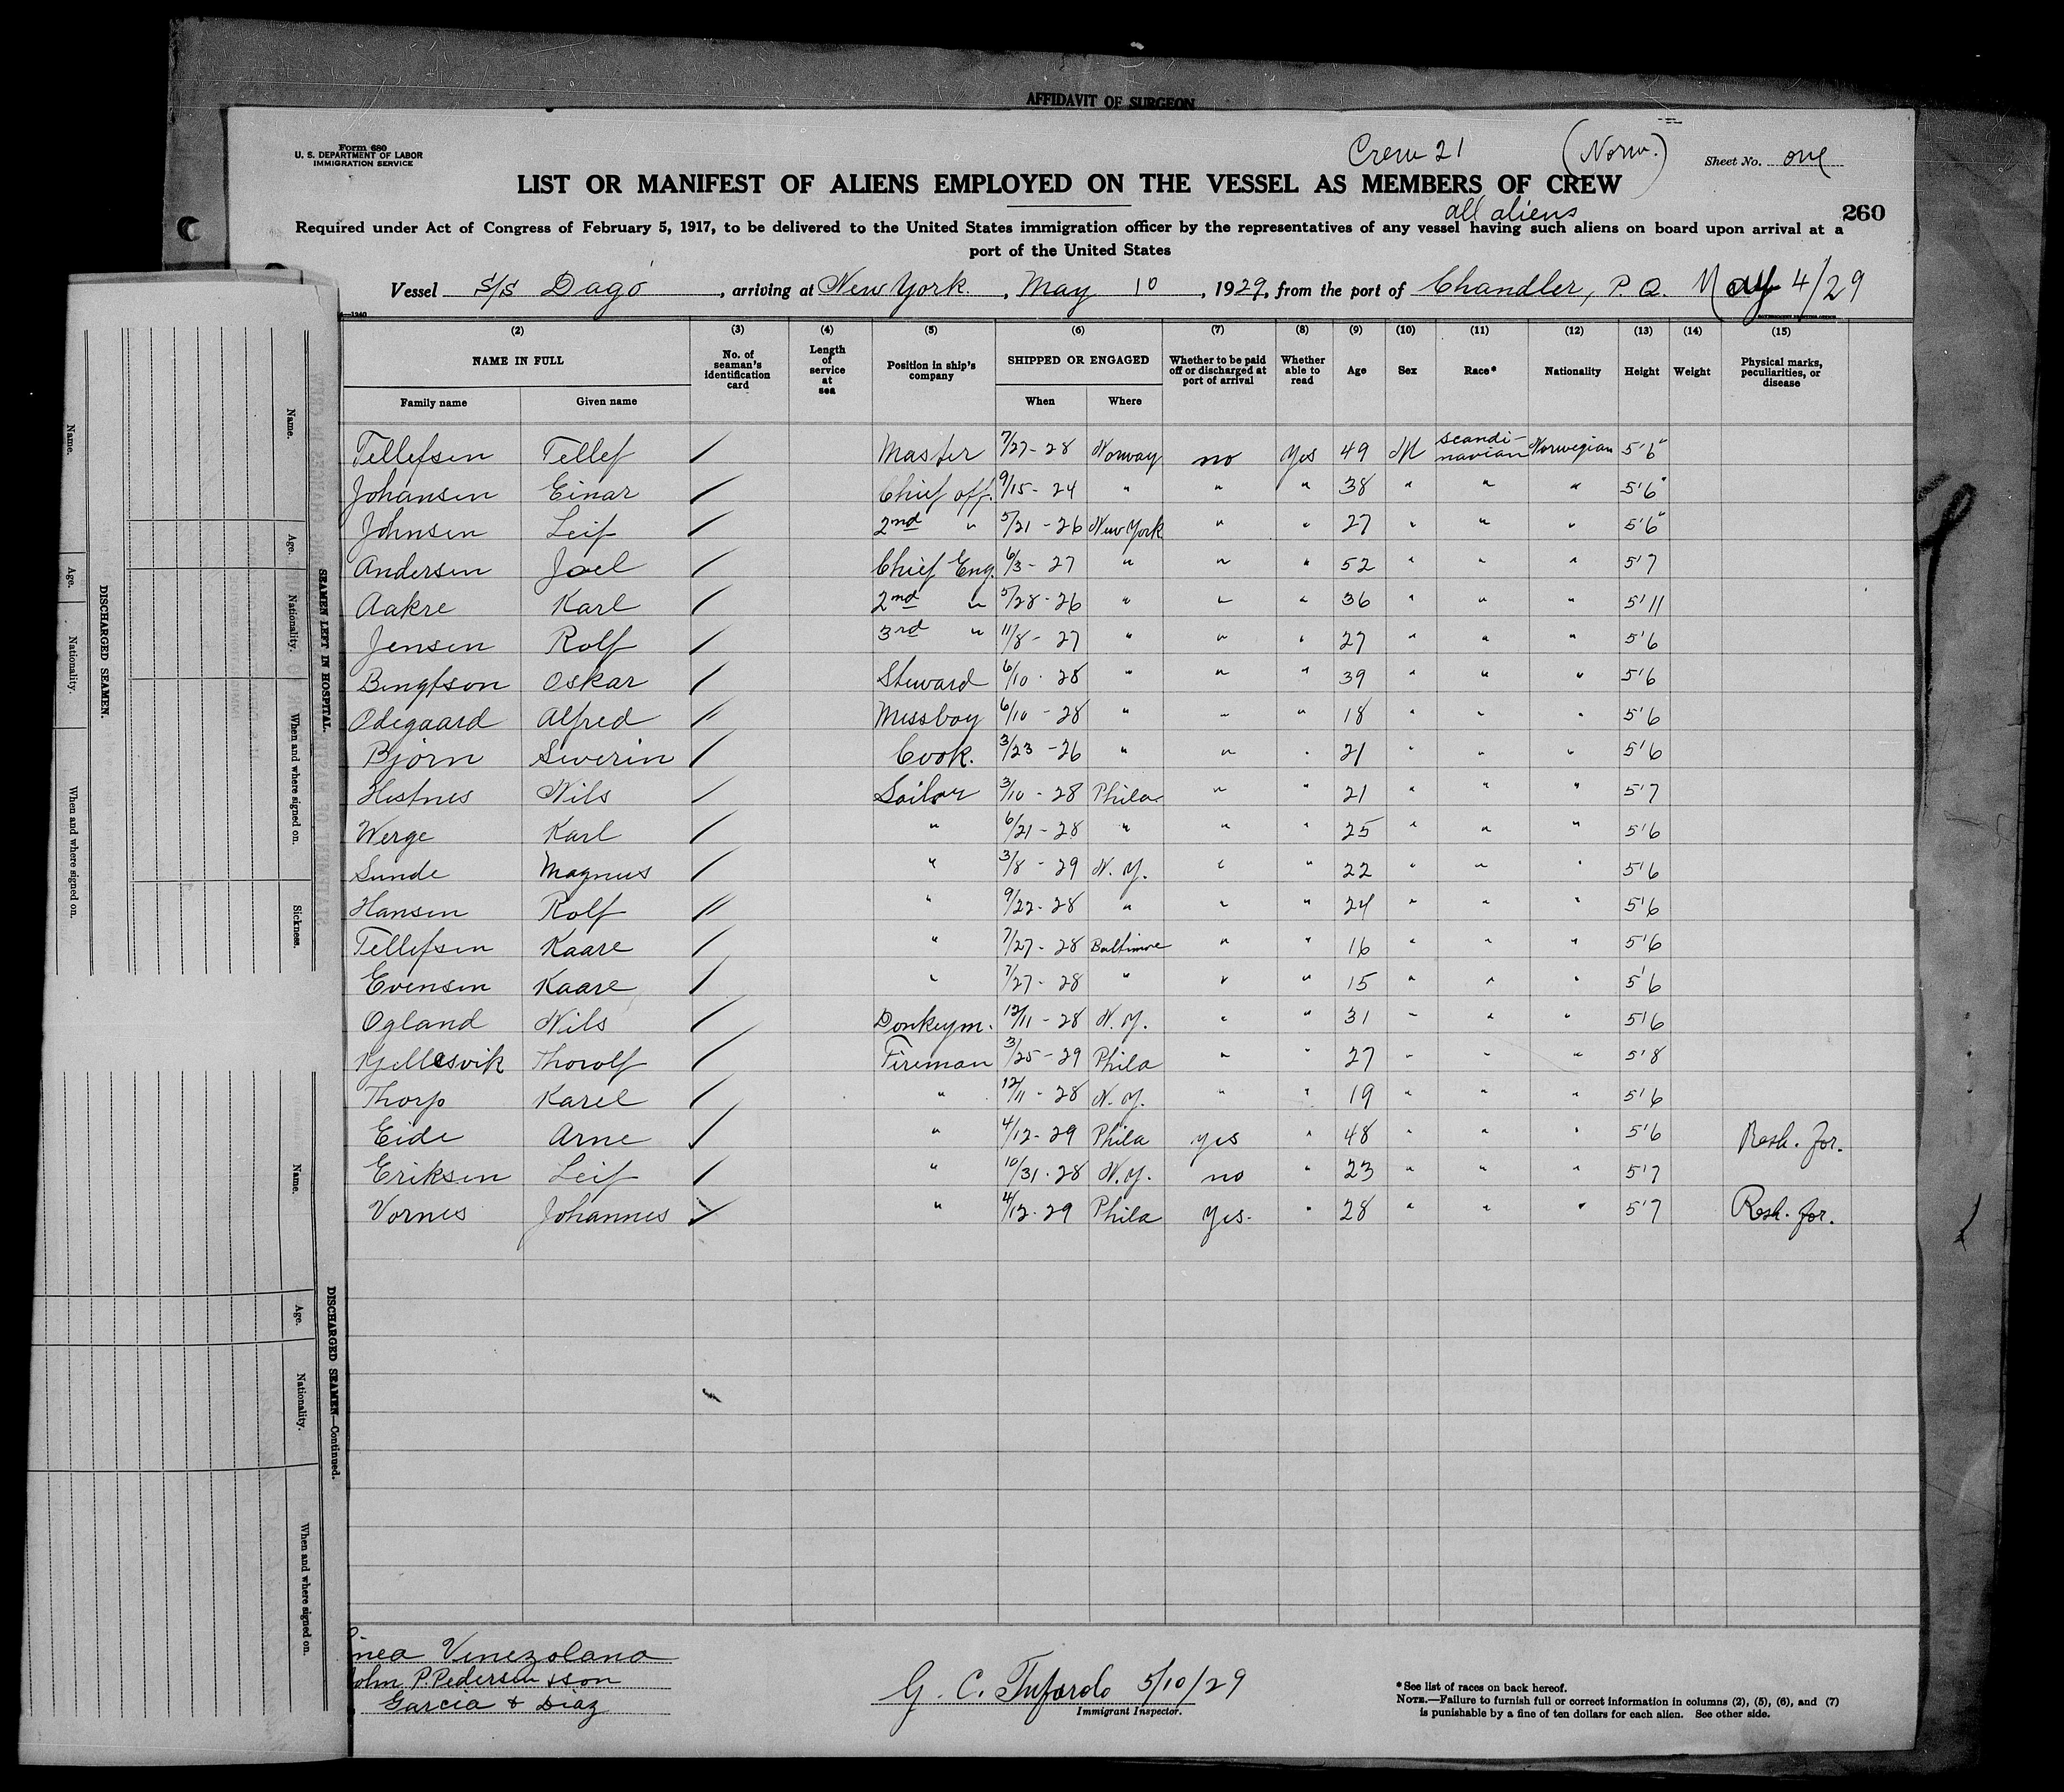 AFFIDAVIT OF SURGEON
Form 680
U. S. DEPARTMENT OF LABOR
IMMIGRATION SERVICE
Crew 21 (Norw.) Sheet No. one
LIST OR MANIFEST OF ALIENS EMPLOYED ON THE VESSEL AS MEMBERS OF CREW
all aliens
260
Required under Act of Congress of February 5, 1917, to be delivered to the United States immigration officer by the representatives of any vessel having such aliens on board upon arrival at a
port of the United States
Vessel S/S Dago, arriving at New York, May 10, 1929, from the port of Chandler, P. Q. May 4/29
(2) (3) (4) (5) (6) (7) (8) (9) (10) (11) (12) (13) (14) (15)
NAME IN FULL No. of seaman's identification card Length of service at sea Position in ship's company SHIPPED OR ENGAGED Whether to be paid off or discharged at port of arrival Whether able to read Age Sex Race* Nationality Height Weight Physical marks, peculiarities, or disease
Family name Given name When Where
Tellefsen Tellef Master 7/27-28 Norway no Yes 49 M Scandinavian Norwegian 5'6"
Johansen Einar Chief off. 9/15-24 " " " 38 " " " 5'6"
Johnsen Leif 2nd " 5/21-26 New York " " 27 " " " 5'6"
Andersen Joel Chief Eng. 6/3-27 " " " 52 " " " 5'7
Aakre Karl 2nd " 5/28-26 " " " 36 " " " 5'11
Jensen Rolf 3rd " 11/8-27 " " " 27 " " " 5'6
Bengtson Oskar Steward 6/10-28 " " " 39 " " " 5'6
Odegaard Alfred Messboy 6/10-28 " " " 18 " " " 5'6
Bjorn Severin Cook. 3/23-26 " " " 21 " " " 5'6
Hestnes Nils Sailor 3/10-28 Phila " " 21 " " " 5'7
Werge Karl " 6/21-28 " " " 25 " " " 5'6
Sunde Magnus " 3/8-29 N.Y. " " 22 " " " 5'6
Hansen Rolf " 9/22-28 " " " 24 " " " 5'6
Tellefsen Kaare " 7/27-28 Baltimore " " 16 " " " 5'6
Evensen Kaare " 7/27-28 " " " 15 " " " 5'6
Ogland Nils Donkeym. 12/11-28 N.Y. " " 31 " " " 5'6
Kjellesvik Thorolf Fireman 3/25-29 Phila " " 27 " " " 5'8
Thorp Karel " 12/11-28 N.Y. " " 19 " " " 5'6
Eide Arne " 4/12-29 Phila yes " 48 " " " 5'6 Resh. for.
Eriksen Leif " 10/31-28 N.Y. no " 23 " " " 5'7
Vornes Johannes " 4/12-29 Phila Yes. " 28 " " " 5'7 Resh. for.
inea Venezolana
John P. Pedersen & son
Garcia & Diaz
G. C. Tufarolo 5/10/29
Immigrant Inspector.
*See list of races on back hereof.
NOTE.—Failure to furnish full or correct information in columns (2), (5), (6), and (7)
is punishable by a fine of ten dollars for each alien. See other side.
SEAMEN LEFT IN HOSPITAL.
Name. Age. Nationality. When and where signed on. Sickness.
DISCHARGED SEAMEN.
Name. Age. Nationality. When and where signed on.
DISCHARGED SEAMEN—Continued.
Name. Age. Nationality. When and where signed on.